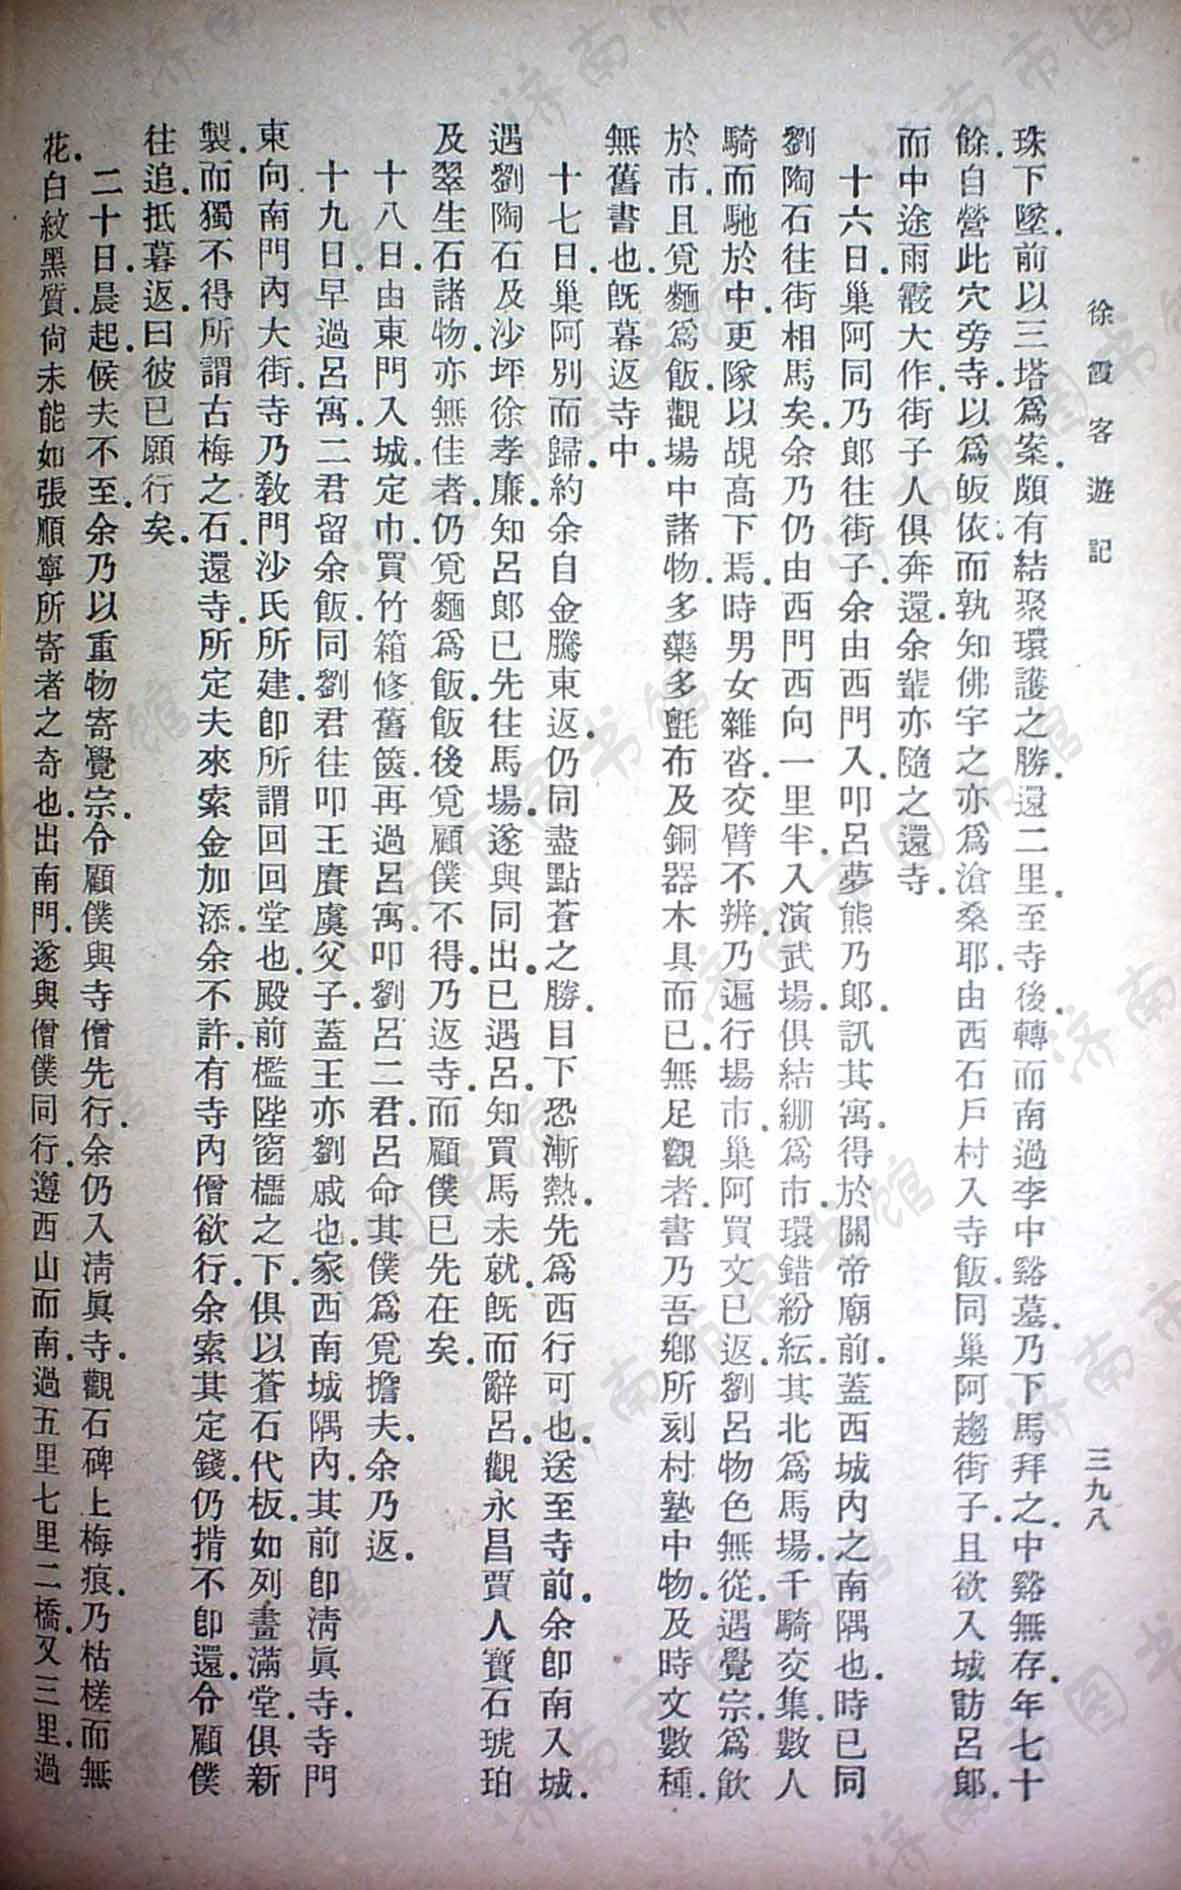 徐霞客遊記
三九八
珠下墜．前以三塔爲案．頗有結聚環護之勝．還二里．至寺後．轉而南過李中谿墓．乃下馬拜之．中谿無存．年七十
餘．自營此穴旁寺．以爲皈依．而孰知佛宇之亦爲滄桑耶．由西石戶村入寺飯．同巢阿趨街子．且欲入城訪呂郎．
而中途雨霰大作．街子人俱奔還．余輩亦隨之還寺．
十六日．巢阿同乃郎往街子．余由西門入．叩呂夢熊乃郎．訊其寓．得於關帝廟前．蓋西城內之南隅也．時已同
劉陶石往街相馬矣．余乃仍由西門西向一里半．入演武場．俱結綳爲市．環錯紛紜．其北爲馬場．千騎交集．數人
騎而馳於中．更隊以覘高下焉．時男女雜沓．交臂不辨．乃遍行場市．巢阿買文已返．劉呂物色無從．遇覺宗．爲飮
於市．且覓麵爲飯．觀場中諸物．多藥多氈布及銅器木具而已．無足觀者．書乃吾鄉所刻村塾中物．及時文數種．
無舊書也．旣暮返寺中．
十七日．巢阿別而歸．約余自金騰東返．仍同盡點蒼之勝．目下恐漸熱．先爲西行可也．送至寺前．余卽南入城．
遇劉陶石及沙坪徐孝廉．知呂郎已先往馬場．遂與同出．已遇呂．知買馬未就．旣而辭呂．觀永昌賈人寶石琥珀
及翠生石諸物．亦無佳者．仍覓麵爲飯．飯後覓顧僕不得．乃返寺．而顧僕已先在矣．
十八日．由東門入城．定巾．買竹箱修舊篋．再過呂寓．叩劉呂二君．呂命其僕爲覓擔夫．余乃返．
十九日．早過呂寓．二君留余飯．同劉君往叩王賡虞父子．蓋王亦劉戚也．家西南城隅內．其前卽淸眞寺．寺門
東向．南門內大街．寺乃敎門沙氏所建．卽所謂回回堂也．殿前檻陛窗櫺之下．俱以蒼石代板．如列畫滿堂．俱新
製．而獨不得所謂古梅之石．還寺．所定夫來索金加添．余不許．有寺內僧欲行．余索其定錢．仍掯不卽還．令顧僕
往追．抵暮返．曰彼已願行矣．
二十日．晨起．候夫不至．余乃以重物寄覺宗．令顧僕與寺僧先行．余仍入淸眞寺．觀石碑上梅痕．乃枯槎而無
花．白紋黑質．尙未能如張順寧所寄者之奇也．出南門．遂與僧僕同行．遵西山而南．過五里七里二橋．又三里．過